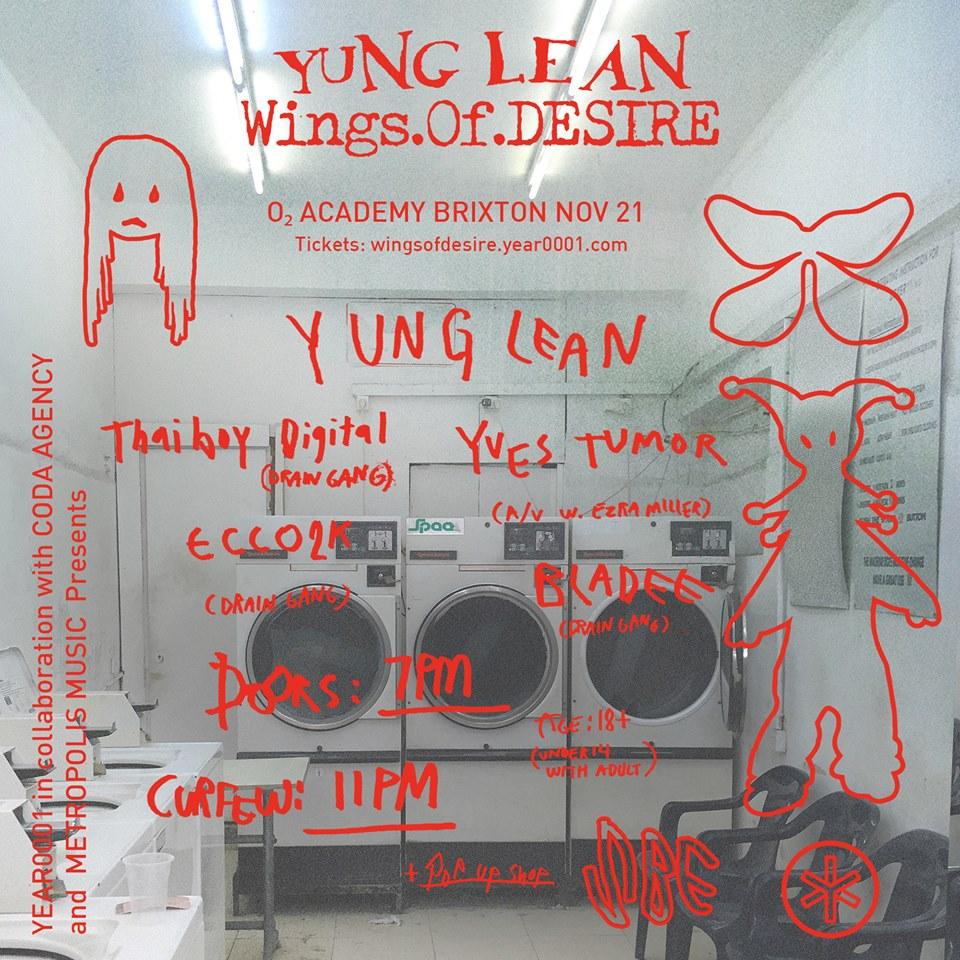 YUNG LEAN
Wings.Of.DESIRE
O₂ ACADEMY BRIXTON NOV 21
Tickets: wingsofdesire.year0001.com
YUNG LEAN
Thaiboy Digital
(DRAIN GANG)
YVES TUMOR
(A/V W. EZRA MILLER)
ECCO2K
(DRAIN GANG)
BLADEE
(DRAIN GANG)
DOORS: 7PM
AGE: 18+
(UNDER 14
WITH ADULT)
CURFEW: 11PM
+ POP UP SHOP
YEAR0001 in collaboration with CODA AGENCY
and METROPOLIS MUSIC Presents
Spaa
BUTTON